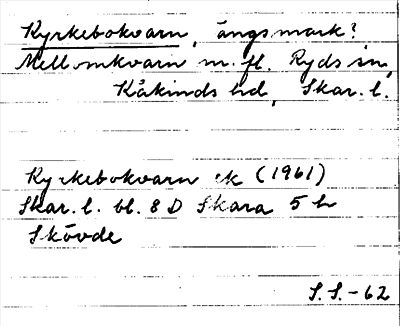 Kyrkebokvarn, ängsmark?
Mellomkvarn m. fl. Ryds sn,
Kåkinds hd, Skar. l.
Kyrkebokvarn ek (1961)
Skar. l. bl. 8 D Skara 5 h
Skövde
S. S. -62